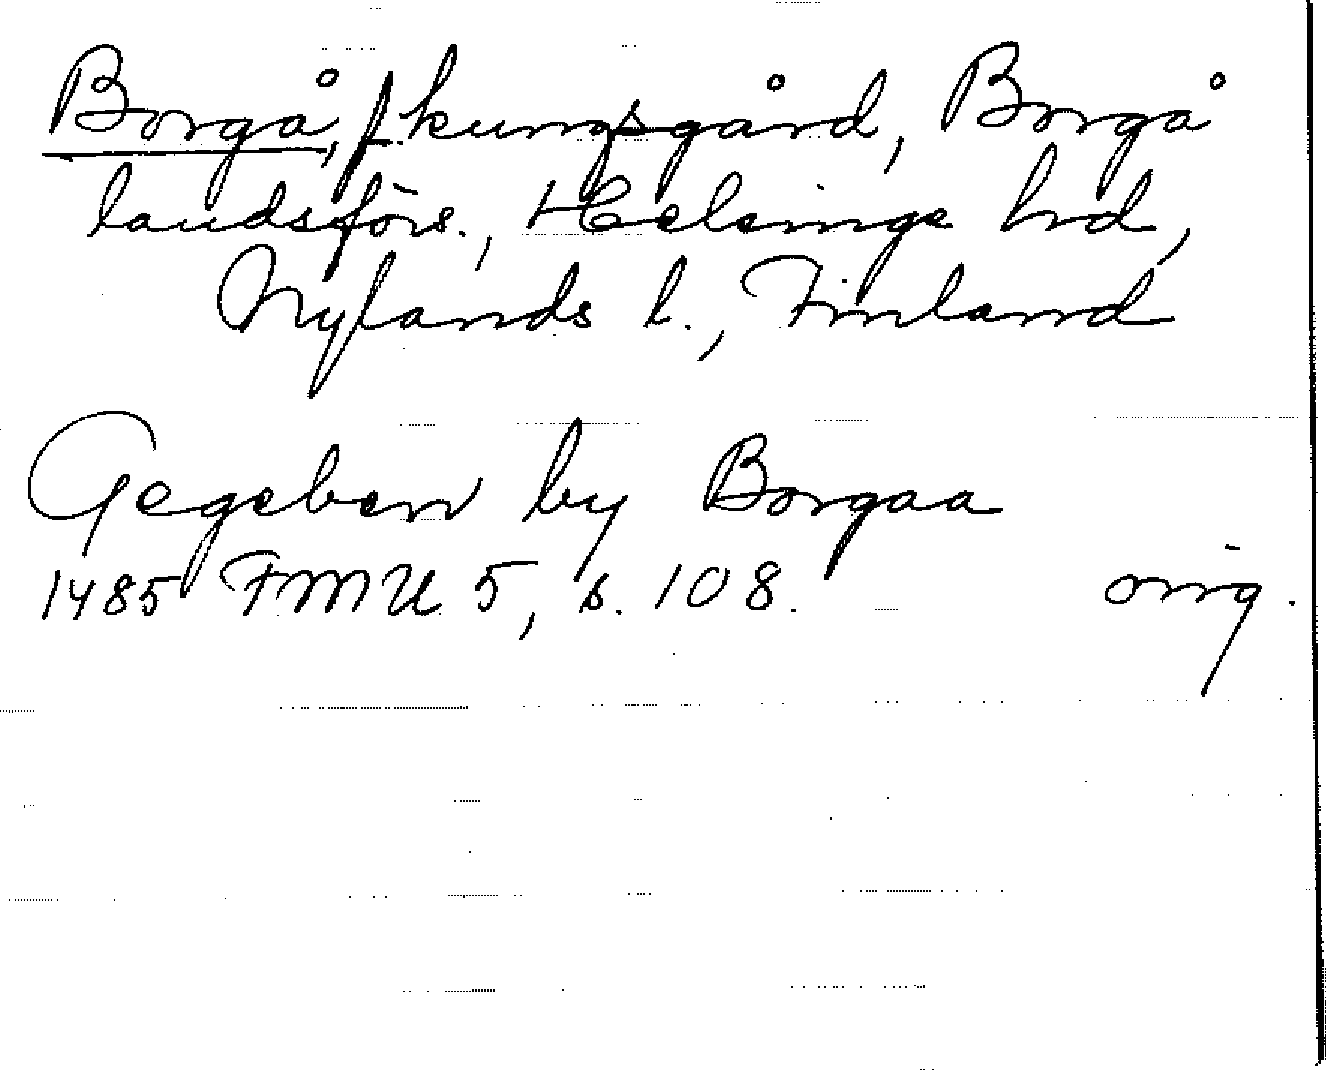 Borgå, f. kungsgård, Borgå
landsförs., Helsinge hd,
Nylands l., Finland
Gegeben by Borgaa
1485 FMU 5, s. 108. orig.